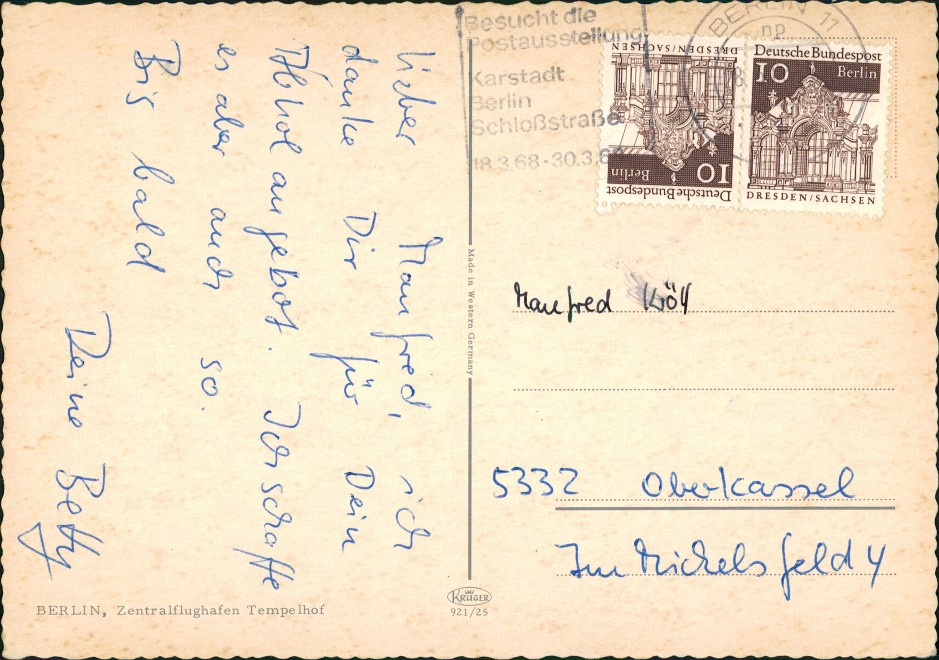 Lieber Manfred, ich
danke Dir für Dein
Abholangebot. Ich schaffe
es aber auch so.
Bis bald
Deine Betty
BERLIN, Zentralflughafen Tempelhof
Made in Western Germany
KRÜGER
921/25
Besucht die
Postausstellung
Karstadt
Berlin
Schloßstraße
18.3.68-30.3.6
BERLIN 11
np
Deutsche Bundespost
10 Berlin
DRESDEN/SACHSEN
Deutsche Bundespost
10 Berlin
DRESDEN/SACHSEN
Manfred Kröll
5332 Oberkassel
Im Michelsfeld 4